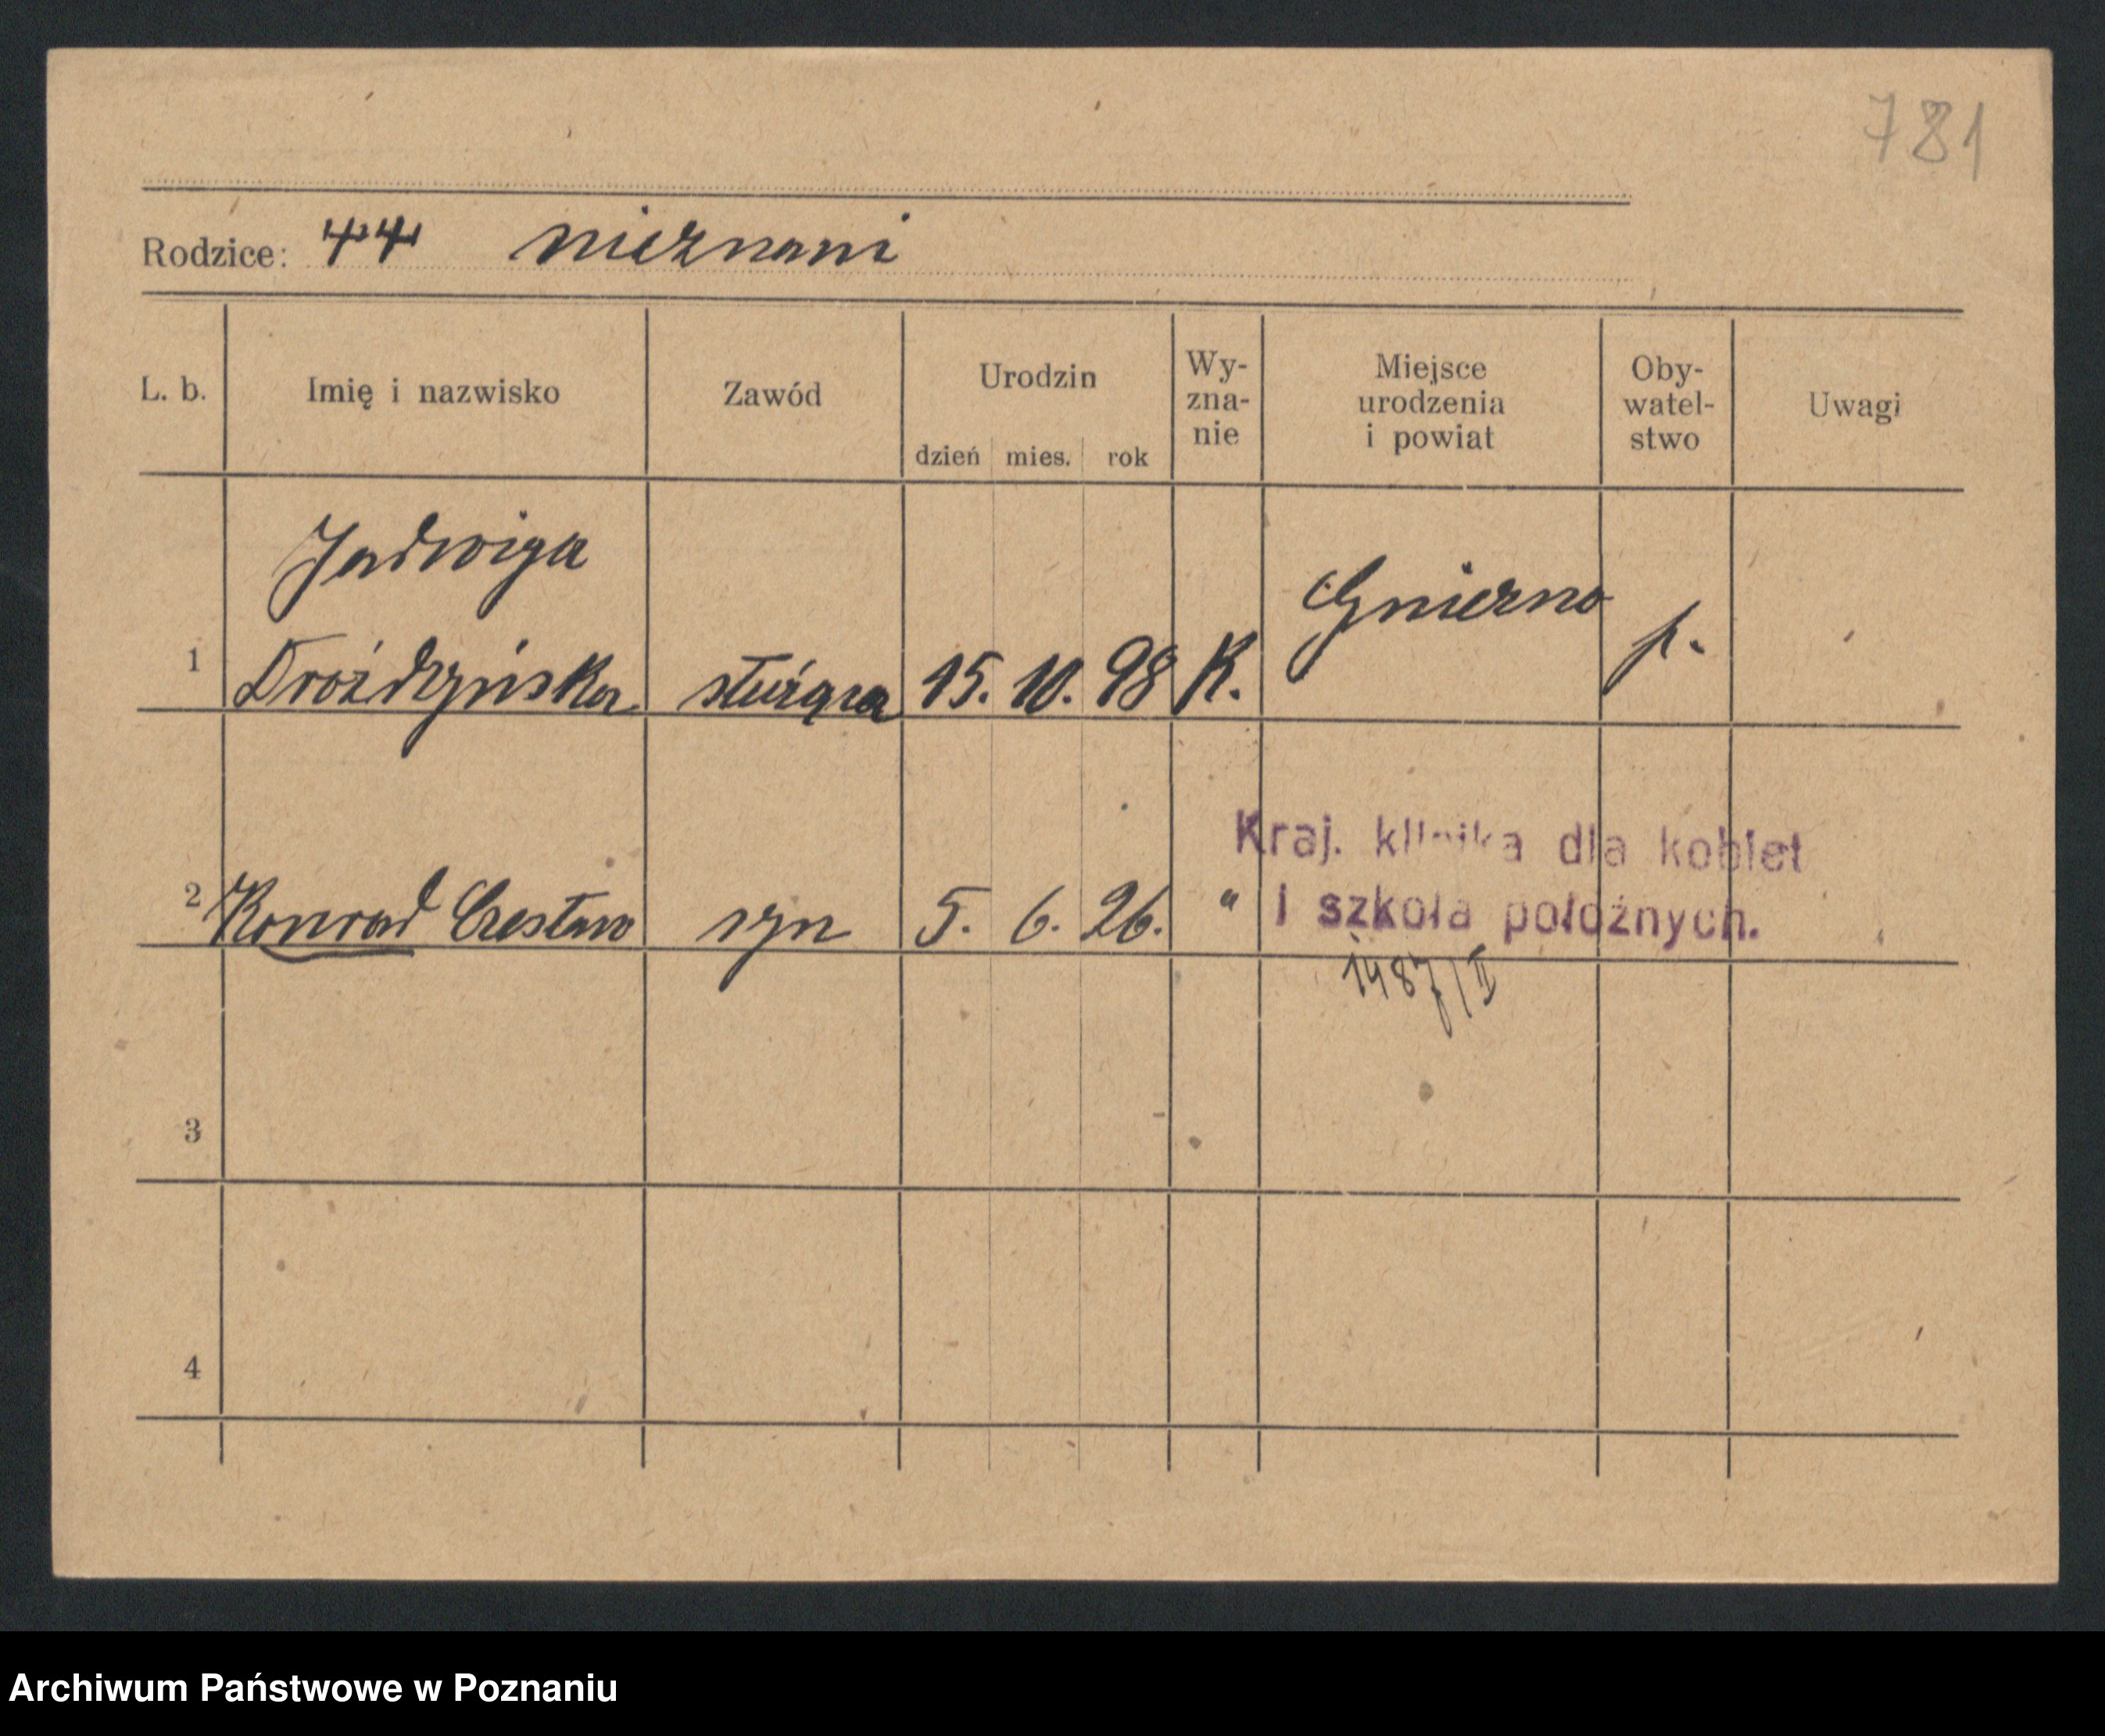 781
Rodzice: nieznani
L. b. Imię i nazwisko Zawód Urodzin dzień mies. rok Wy-zna-nie Miejsce urodzenia i powiat Oby-watel-stwo Uwagi
Jadwiga
1 Drożdżyńska służąca 15. 10. 98 K. Gniezno p.
Kraj. klinika dla kobiet
2 Konrad Czesław syn 5. 6. 26. " i szkoła położnych.
1487/II
3
4
Archiwum Państwowe w Poznaniu